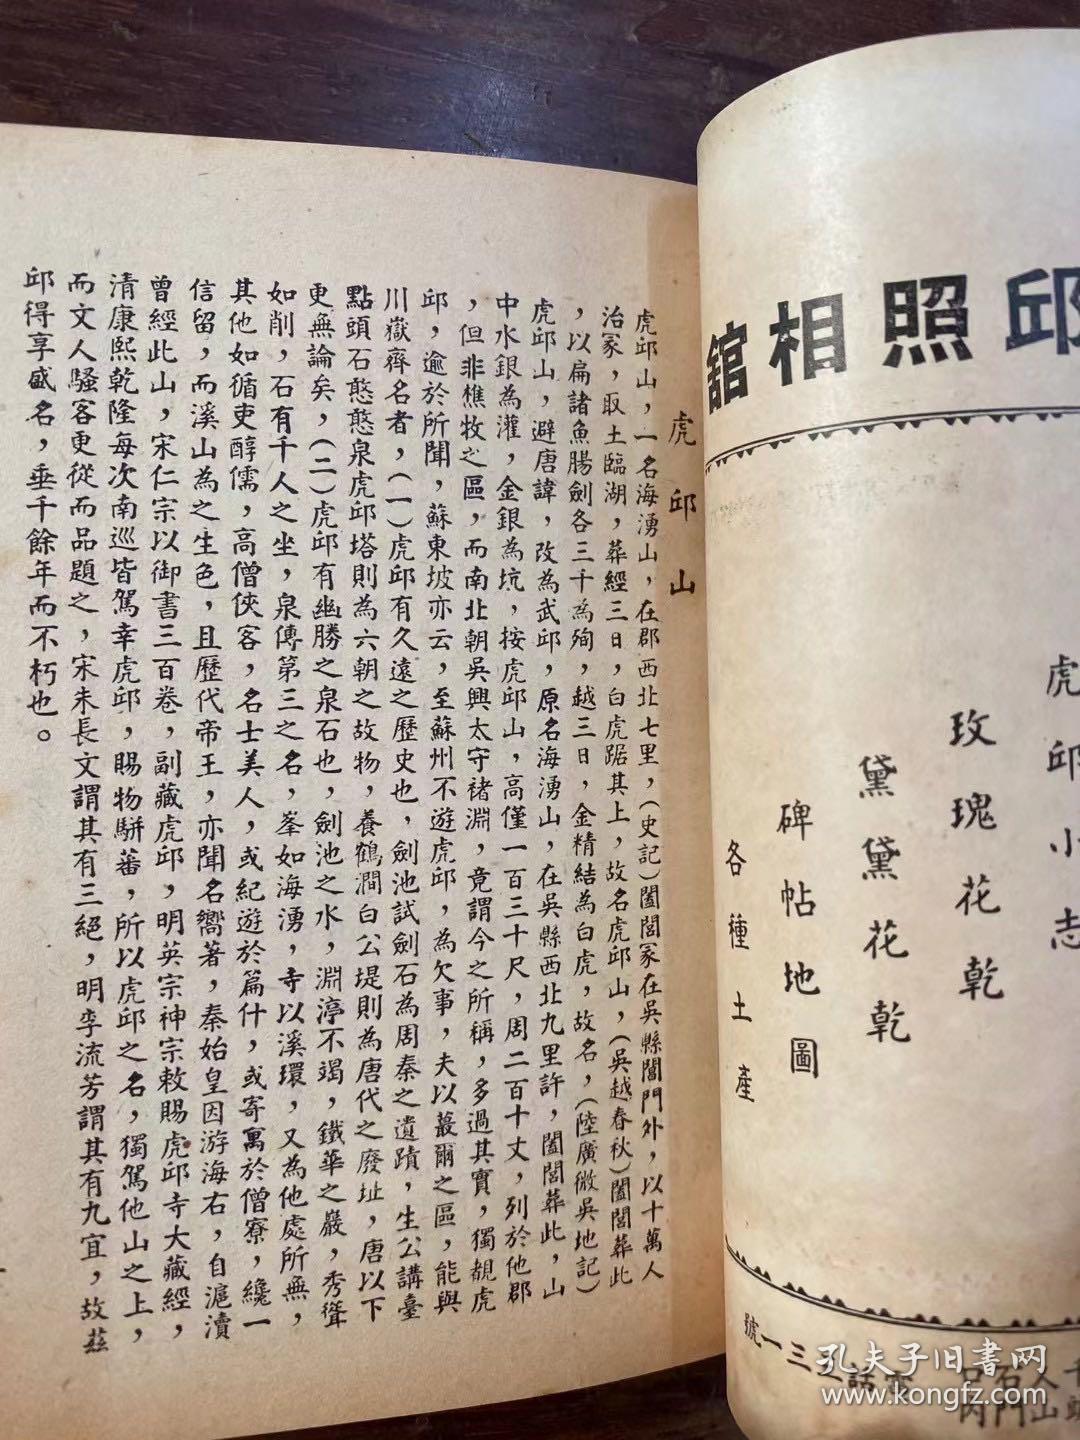 邱照相舘
虎邱小志
玫瑰花乾
黛黛花乾
碑帖地圖
各種土產
三一號
虎邱山
虎邱山，一名海湧山，在郡西北七里，(史記)闔閭冢在吳縣閶門外，以十萬人
治冢，取土臨湖，葬經三日，白虎踞其上，故名虎邱山，(吳越春秋)闔閭葬此
，以扁諸魚腸劍各三千為殉，越三日，金精結為白虎，故名，(陸廣微吳地記)
虎邱山，避唐諱，改為武邱，原名海湧山，在吳縣西北九里許，闔閭葬此，山
中水銀為灌，金銀為坑，按虎邱山，高僅一百三十尺，周二百十丈，列於他郡
，但非樵牧之區，而南北朝吳興太守褚淵，竟謂今之所稱，多過其實，獨覩虎
邱，逾於所聞，蘇東坡亦云，至蘇州不遊虎邱，為欠事，夫以蕞爾之區，能與
川嶽齊名者，(一)虎邱有久遠之歷史也，劍池試劍石為周秦之遺蹟，生公講臺
點頭石憨憨泉虎邱塔則為六朝之故物，養鶴澗白公堤則為唐代之廢址，唐以下
更無論矣，(二)虎邱有幽勝之泉石也，劍池之水，淵渟不竭，鐵華之巖，秀聳
如削，石有千人之坐，泉傳第三之名，峯如海湧，寺以溪環，又為他處所無，
其他如循吏醇儒，高僧俠客，名士美人，或紀遊於篇什，或寄寓於僧寮，纔一
信留，而溪山為之生色，且歷代帝王，亦聞名嚮著，秦始皇因游海右，自滬瀆
曾經此山，宋仁宗以御書三百卷，副藏虎邱，明英宗神宗敕賜虎邱寺大藏經，
清康熙乾隆每次南巡皆駕幸虎邱，賜物駢蕃，所以虎邱之名，獨駕他山之上，
而文人騷客更從而品題之，宋朱長文謂其有三絕，明李流芳謂其有九宜，故茲
邱得享盛名，垂千餘年而不朽也。
孔夫子旧书网
www.kongfz.com